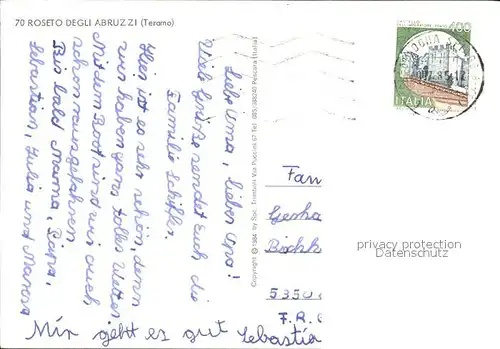 70 ROSETO DEGLI ABRUZZI (Teramo)
Liebe Oma, lieber Opa!
Viele Grüße sendet Euch die
Familie
Hier ist es sehr schön, denn
wir haben ganz tolles Wetter
Mit dem Boot sind wir auch
schon rausgefahren
Bis bald Mama, Papa,
Sebastian, Julia und
Mir geht es gut Sebastia
Copyright © 1984 by Soc. Trimboni Via Puccini 67 Tel. (085) Pescara (Italia)
400
ITALIA
Fam
5350
F.R.
privacy protection
Datenschutz